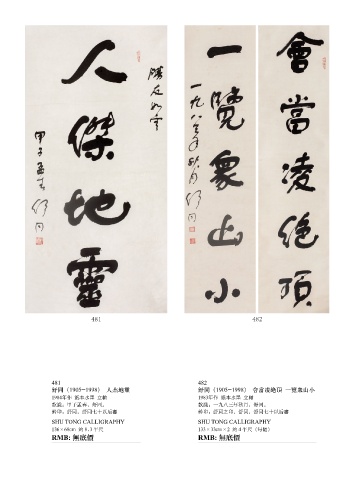 人傑地靈
勝友如雲
甲子孟春
舒同
會當凌絕頂
一覽衆山小
一九八三年秋月 舒同
481
482
481
舒同(1905-1998) 人杰地靈
1984年作 紙本水墨 立軸
款識:甲子孟春,舒同。
鈐印:舒同、舒同七十以后書
SHU TONG CALLIGRAPHY
136×66cm 約8.1平尺
RMB: 無底價
482
舒同(1905-1998) 會當凌絕頂 一覽衆山小
1983年作 紙本水墨 立軸
款識:一九八三年秋月,舒同。
鈐印:舒同之印、舒同七十以后書
SHU TONG CALLIGRAPHY
133×33cm×2 約4平尺(每幅)
RMB: 無底價